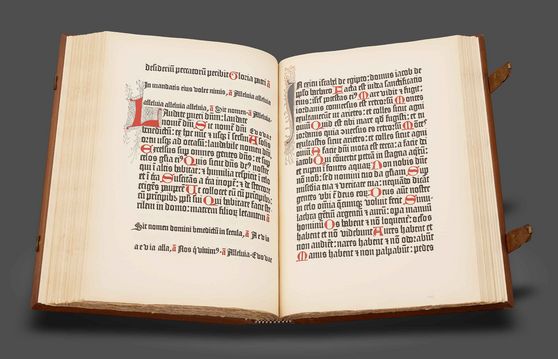 desideriũ peccatorũ peribit Gloria patri ã
In mandatis eius volet nimis, ã Alleluia alleluia
alleluia alleluia alleluia, ã Sit nomen ã Alleluia
LAudate pueri dñm: laudate
nomẽ dñi Sit nomẽ dñi euouae
benedictũ: ex hoc nũc ⁊ usq; ĩ seculũ A solis
ortu usq; ad occasũ: laudabile nomẽ dñi
Excelsus sup omnes gentes dñs: et sup
celos gľia ei⁹ Quis sicut dñs de⁹ noster
qui ĩ altis habitat: ⁊ humilia respicit ĩ celo
et ĩ tra Suscitãs a tra inopẽ: ⁊ de stercore
erigẽs pauperẽ Ut collocet eũ cũ principib;:
cũ principib; ppli sui Qui habitare facit ste
rilem in domo: matrem filiorũ letantem ã
Sit nomen domini benedictũ in secula, ã Aevia
aevia alla, ã Nos q̇ viuim⁹ ã Alleluia Euouae
IN exitu israhel de egipto: domus iacob de
ipľo barbaro Facta est iudea sanctificatio
eius: isrľ potestas ei⁹ Mare vidit ⁊ fugit:
iordanis conuersus est retrorsũ Montes
exultauerũt ut arietes: et colles sicut agni
ouiũ Quid est tibi mare qđ fugisti: et tu
iordanis quia conuersus es retrorsũ Mõtes
exultastis sicut arietes: et colles sicut agni
ouiũ A facie dñi mota est terra: a facie dei
iacob Qui conuertit petrã in stagna aquaꝝ:
et rupem ĩ fontes aquaꝝ Non nobis dñe
nõ nob: sed nomini tuo da gľiam Sup
mľia tua ⁊ veritate tua: nequãdo dicãt
gentes ubi ẽ deus eoꝝ Deus aũt noster
in celo: omĩa quecũq; voluit fecit Simu
lachra gentiũ argentũ ⁊ aurũ: opa manuũ
hominũ Os habent ⁊ nõ loquent: oculos
habent et nõ videbunt Aures habent et
non audient: nares habent ⁊ nõ odorabũt
Manus habent ⁊ non palpabũt: pedes